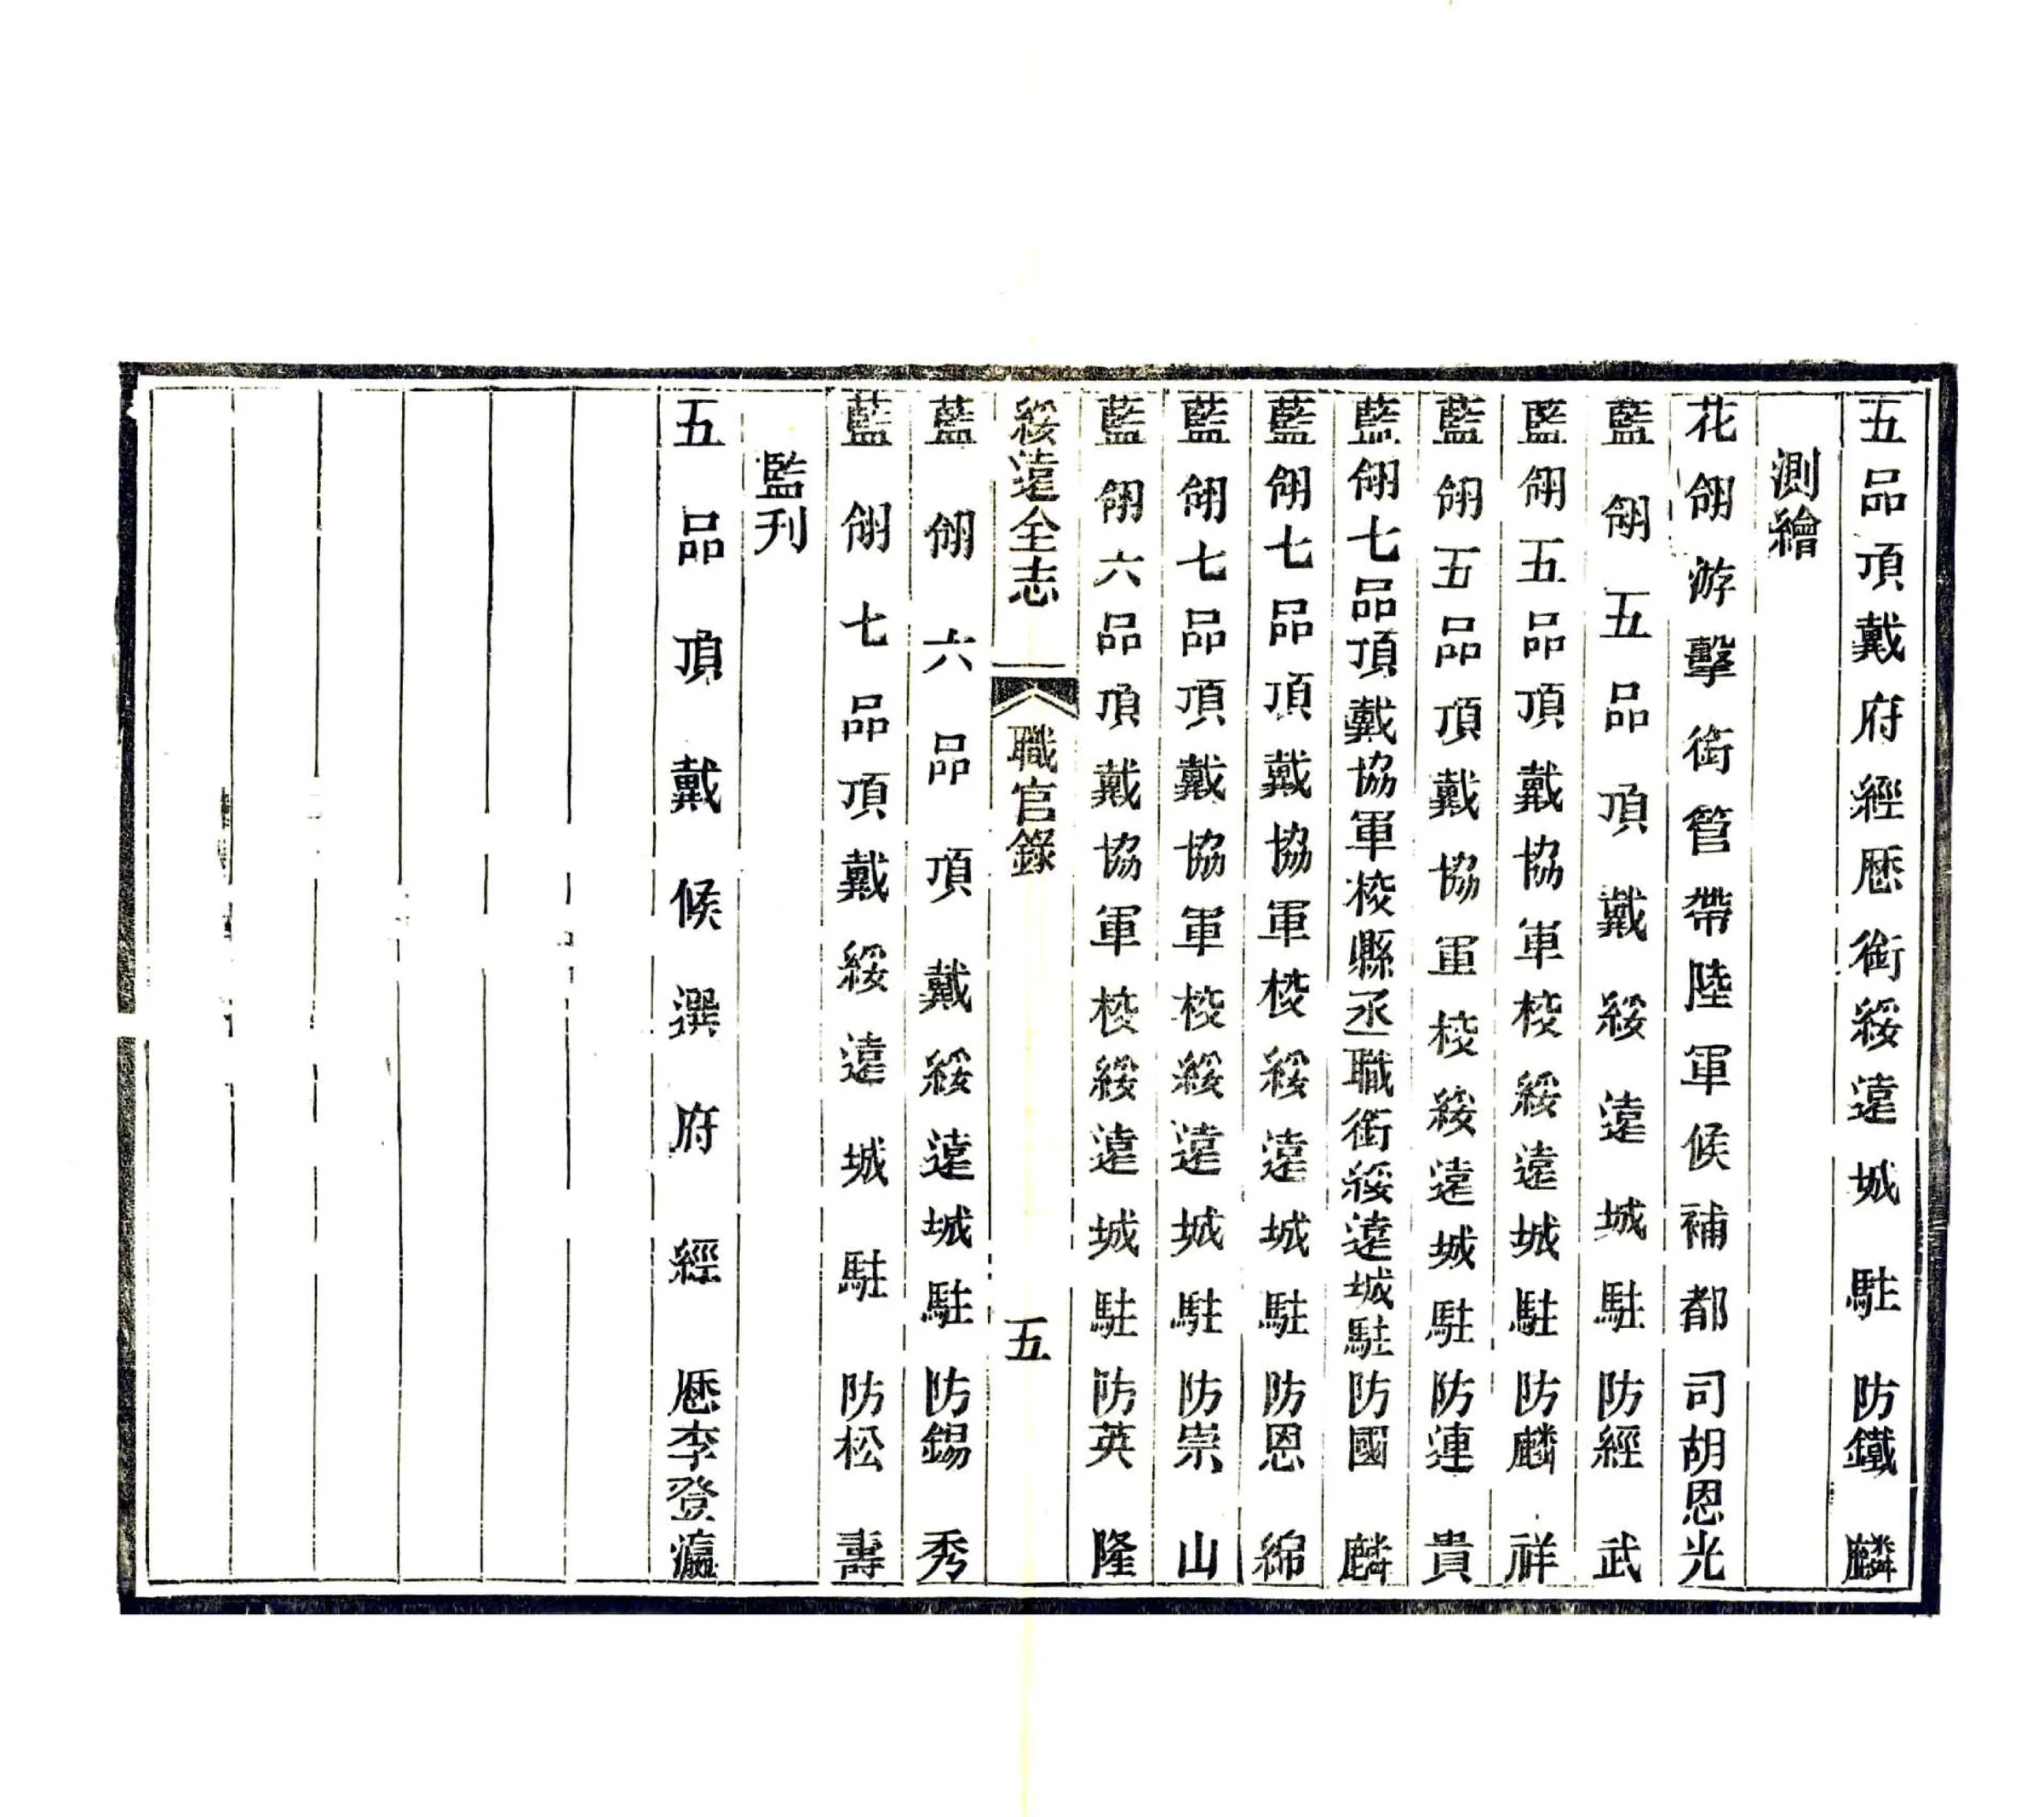 五品頂戴府經歷銜綏遠城駐防鐵麟
測繪
花翎游擊銜管帶陸軍候補都司胡恩光
藍翎五品頂戴綏遠城駐防經武
藍翎五品頂戴協軍校綏遠城駐防麟祥
藍翎五品頂戴協軍校綏遠城駐防連貴
藍翎七品頂戴協軍校縣丞職銜綏遠城駐防國麟
藍翎七品頂戴協軍校綏遠城駐防恩綿
藍翎七品頂戴協軍校綏遠城駐防崇山
藍翎六品頂戴協軍校綏遠城駐防英隆
綏遠全志 職官錄 五
藍翎六品頂戴綏遠城駐防錫秀
藍翎七品頂戴綏遠城駐防松壽
監刊
五品頂戴候選府經歷李登瀛